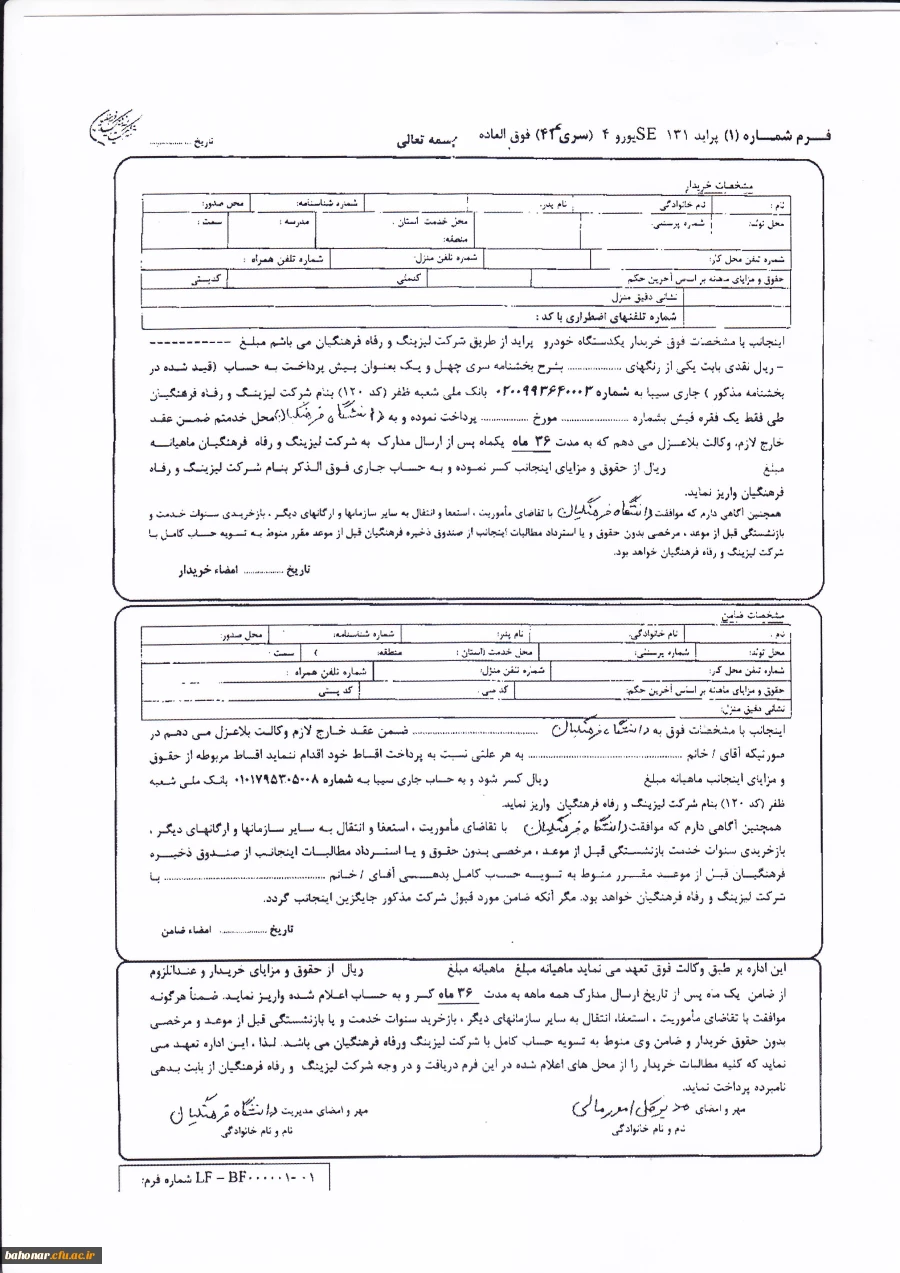 فـرم شمـاره (۱) پراید ۱۳۱ SEیورو ۴ (سری ۴۳) فوق العاده
بسمه تعالی
تاریخ ................
مشخصات خریدار
نام : نام خانوادگی نام پدر: شماره شناسنامه: محل صدور:
محل تولد: شماره پرسنلی: محل خدمت استان . مدرسه : سمت :
منطقه:
شماره تلفن محل کار: شماره تلفن منزل: شماره تلفن همراه :
حقوق و مزایای ماهانه بر اساس آخرین حکم کدملی کدپستی
نشانی دقیق منزل
شماره تلفنهای اضطراری با کد :
اینجانب با مشخصات فوق خریدار یکدستگاه خودرو پراید از طریق شرکت لیزینگ و رفاه فرهنگیان می باشم مبلغ -----------
- ریال نقدی بابت یکی از رنگهای .................... بشرح بخشنامه سری چهل و یک بعنوان پیش پرداخت به حساب (قید شده در
بخشنامه مذکور ) جاری سیبا به شماره ۰۲۰۰۹۹۳۶۴۰۰۰۳ بانک ملی شعبه ظفر (کد ۱۲۰) بنام شرکت لیزینگ و رفاه فرهنگیان
طی فقط یک فقره فیش بشماره ........................ مورخ ................ پرداخت نموده و به دانشگاه فرهنگیان محل خدمتم ضمن عقد
خارج لازم، وکالت بلاعزل می دهم که به مدت ۳۶ ماه یکماه پس از ارسال مدارک به شرکت لیزینگ و رفاه فرهنگیان ماهیانه
مبلغ ریال از حقوق و مزایای اینجانب کسر نموده و به حساب جاری فوق الذکر بنام شرکت لیزینگ و رفاه
فرهنگیان واریز نماید.
همچنین آگاهی دارم که موافقت دانشگاه فرهنگیان با تقاضای مأموریت ، استعفا و انتقال به سایر سازمانها و ارگانهای دیگر ، بازخریدی سنوات خدمت و
بازنشستگی قبل از موعد ، مرخصی بدون حقوق و یا استرداد مطالبات اینجانب از صندوق ذخیره فرهنگیان قبل از موعد مقرر منوط به تسویه حساب کامل با
شرکت لیزینگ و رفاه فرهنگیان خواهد بود.
تاریخ .............. امضاء خریدار
مشخصات ضامن
نام . نام خانوادگی: نام پدر: شماره شناسنامه: محل صدور:
محل تولد: شماره پرسنلی: محل خدمت (استان : منطقه: ) سمت .
شماره تلفن محل کار: شماره تلفن منزل: شماره تلفن همراه :
حقوق و مزایای ماهانه بر اساس آخرین حکم: کد ملی . کد پستی
نشانی دقیق منزل:
اینجانب با مشخصات فوق به دانشگاه فرهنگیان ................................ ضمن عقد خارج لازم وکالت بلاعزل می دهم در
صورتیکه آقای / خانم ........................................ به هر علتی نسبت به پرداخت اقساط خود اقدام ننماید اقساط مربوطه از حقوق
و مزایای اینجانب ماهیانه مبلغ ریال کسر شود و به حساب جاری سیبا به شماره ۰۱۰۱۷۹۵۳۰۵۰۰۸ بانک ملی شعبه
ظفر (کد ۱۲۰) بنام شرکت لیزینگ و رفاه فرهنگیان واریز نماید.
همچنین آگاهی دارم که موافقت دانشگاه فرهنگیان با تقاضای مأموریت ، استعفا و انتقال به سایر سازمانها و ارگانهای دیگر ،
بازخریدی سنوات خدمت بازنشستگی قبل از موعد ، مرخصی بدون حقوق و یا استرداد مطالبات اینجانب از صندوق ذخیره
فرهنگیان قبل از موعد مقرر منوط به تسویه حساب کامل بدهی آقای / خانم ........................................ با
شرکت لیزینگ و رفاه فرهنگیان خواهد بود. مگر آنکه ضامن مورد قبول شرکت مذکور جایگزین اینجانب گردد.
تاریخ ................ امضاء ضامن
این اداره بر طبق وکالت فوق تعهد می نماید ماهیانه مبلغ ماهیانه مبلغ ریال از حقوق و مزایای خریدار و عندالزوم
از ضامن یک ماه پس از تاریخ ارسال مدارک همه ماهه به مدت ۳۶ ماه کسر و به حساب اعلام شده واریز نماید. ضمناً هرگونه
موافقت با تقاضای مأموریت ، استعفا، انتقال به سایر سازمانهای دیگر ، بازخرید سنوات خدمت و یا بازنشستگی قبل از موعد و مرخصی
بدون حقوق خریدار و ضامن وی منوط به تسویه حساب کامل با شرکت لیزینگ ورفاه فرهنگیان می باشد. لذا ، این اداره تعهد می
نماید که کلیه مطالبات خریدار را از محل های اعلام شده در این فرم دریافت و در وجه شرکت لیزینگ و رفاه فرهنگیان از بابت بدهی
نامبرده پرداخت نماید.
مهر و امضای مدیرکل امور مالی
نام و نام خانوادگی
مهر و امضای مدیریت دانشگاه فرهنگیان
نام و نام خانوادگی
شماره فرم: LF – BF۰۰۰۰۰۱-۰۱
bahonar.cfu.ac.ir